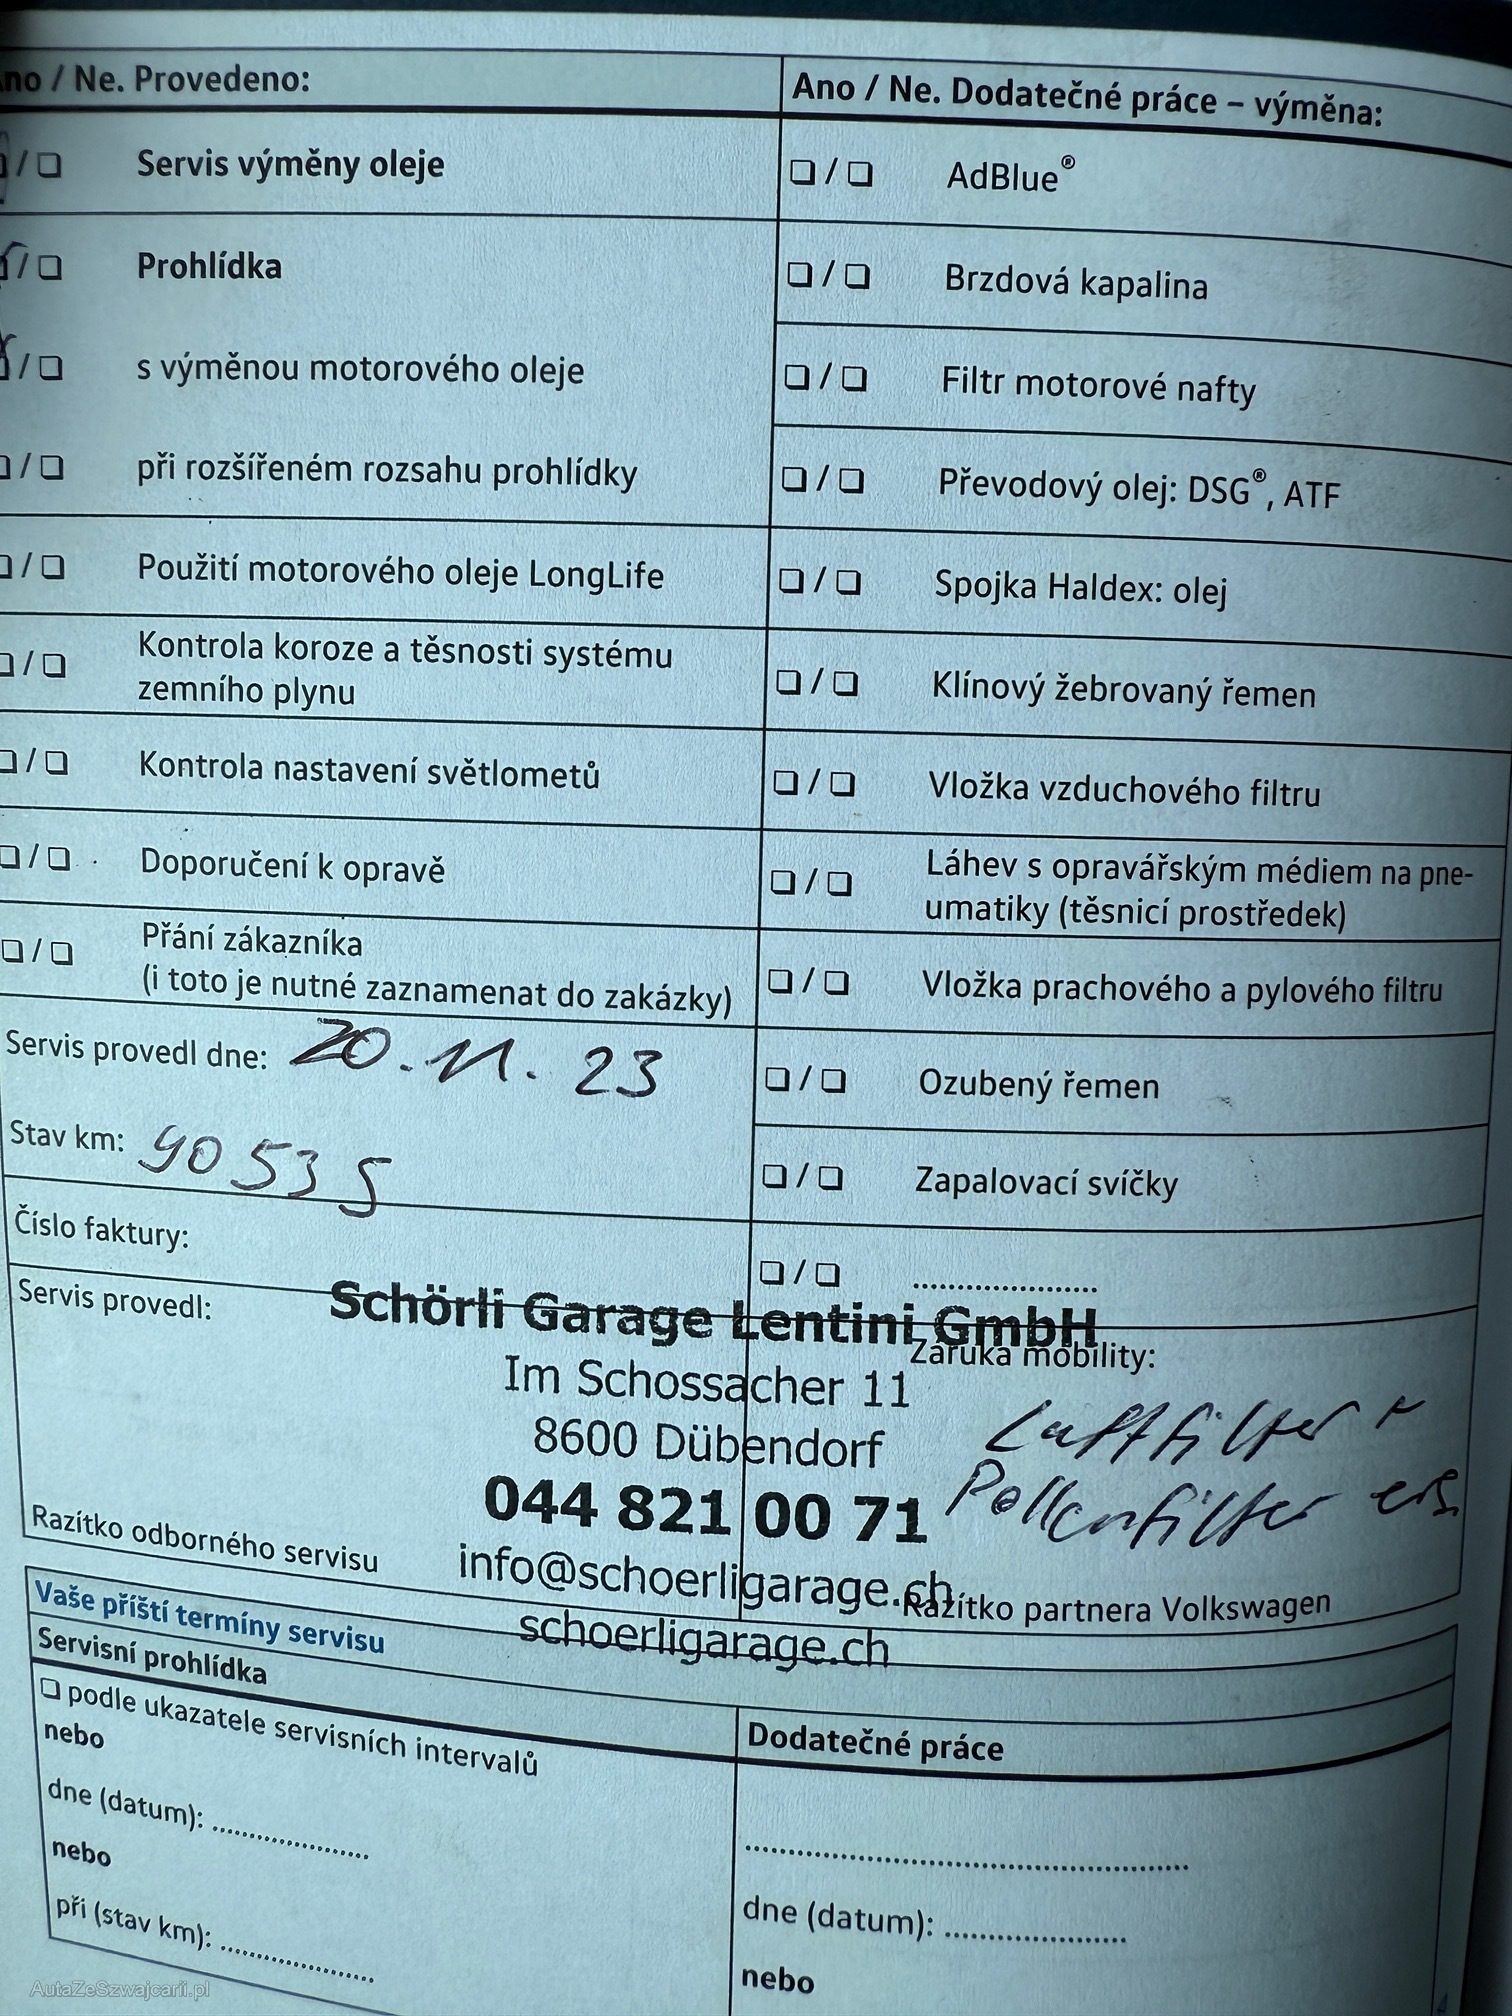 no / Ne. Provedeno:
❏ / ❏ Servis výměny oleje
❏ / ❏ Prohlídka
❏ / ❏ s výměnou motorového oleje
❏ / ❏ při rozšířeném rozsahu prohlídky
❏ / ❏ Použití motorového oleje LongLife
❏ / ❏ Kontrola koroze a těsnosti systému
zemního plynu
❏ / ❏ Kontrola nastavení světlometů
❏ / ❏ Doporučení k opravě
❏ / ❏ Přání zákazníka
(i toto je nutné zaznamenat do zakázky)
Servis provedl dne: 20.11.23
Stav km: 90535
Číslo faktury:
Servis provedl:
Razítko odborného servisu
Ano / Ne. Dodatečné práce – výměna:
❏ / ❏ AdBlue®
❏ / ❏ Brzdová kapalina
❏ / ❏ Filtr motorové nafty
❏ / ❏ Převodový olej: DSG®, ATF
❏ / ❏ Spojka Haldex: olej
❏ / ❏ Klínový žebrovaný řemen
❏ / ❏ Vložka vzduchového filtru
❏ / ❏ Láhev s opravářským médiem na pne-
umatiky (těsnicí prostředek)
❏ / ❏ Vložka prachového a pylového filtru
❏ / ❏ Ozubený řemen
❏ / ❏ Zapalovací svíčky
❏ / ❏ ......................
Záruka mobility:
Luftfilter +
Pollenfilter ers.
Razítko partnera Volkswagen
Schörli Garage Lentini GmbH
Im Schossacher 11
8600 Dübendorf
044 821 00 71
info@schoerligarage.ch
schoerligarage.ch
Vaše příští termíny servisu
Servisní prohlídka
❏ podle ukazatele servisních intervalů
nebo
dne (datum): ....................
nebo
při (stav km): ....................
Dodatečné práce
..........................................................
dne (datum): ........................
nebo
AutaZeSzwajcarii.pl